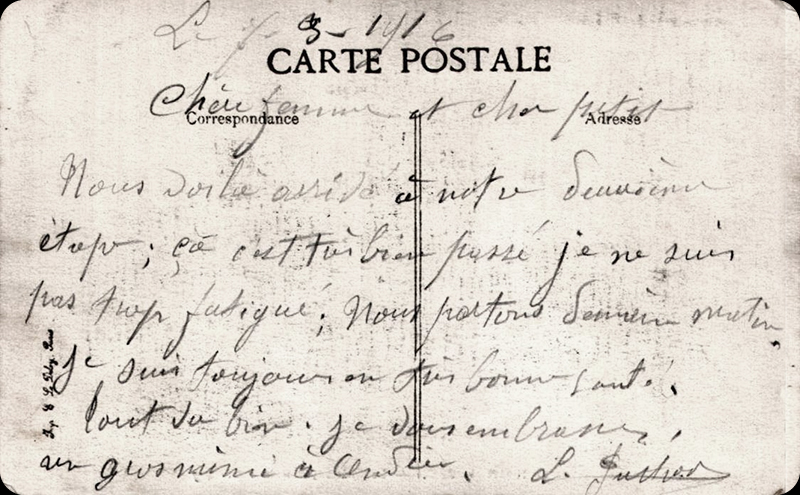 Le 3-1916
CARTE POSTALE
Chère femme et cher petit
Correspondance
Adresse
Nous voila arrivé à notre deuxième
étape; ça c'est très bien passé je ne suis
pas trop fatigué; Nous partons demain matin,
je suis toujours en très bonne santé.
Tout va bien. je vous embrasse,
un gros mimi à
L.